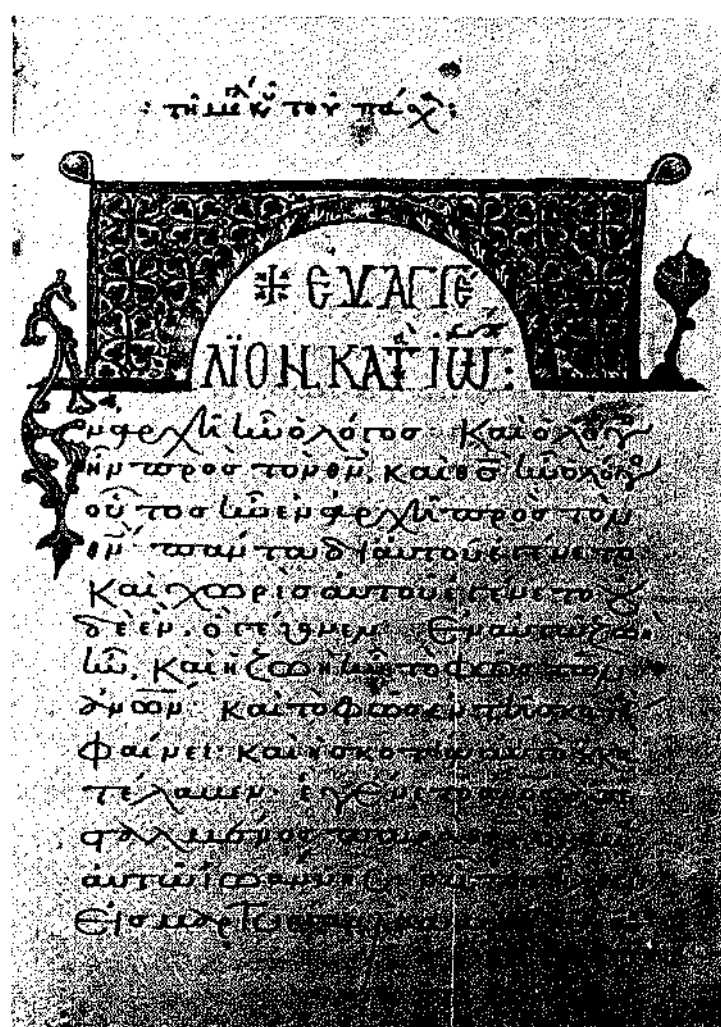 : τῆ μεγλ κυ τοῦ πάσχ :
✠ ΕΥΑΓΓΕ
ΛΪΟΝ ΚΑΤ ΙΩ :
ἐν ἀρχῆ ἦν ὁ λόγος· Καὶ ὁ λόγο
ἦν πρὸς τὸν θν̅, καὶ θς̅ ἦν ὁ λόγο
οὗτος ἦν ἐν ἀρχῆ πρὸς τὸν
θν̅· πάντα δι αὐτοῦ ἐγένετο
Καὶ χωρὶς αὐτοῦ ἐγένετο οὐ
δὲ ἕν, ὃ γέγονεν· Ἐν αὐτῶ ζωὴ
ἦν, Καὶ ἡ ζωὴ ἦν τὸ φῶς τῶν
ἀνων̅· Καὶ τὸ φῶς ἐν τῆ σκοτία
Φαίνει· καὶ ἡ σκοτία αὐτὸ οὐ κα
τέλαβεν· ἐγένετο ἄνος̅ ἀπε
σταλμένος παρὰ
αὐτῶ ἰωάννης· οὗτος
Εἰς μαρτυρίαν